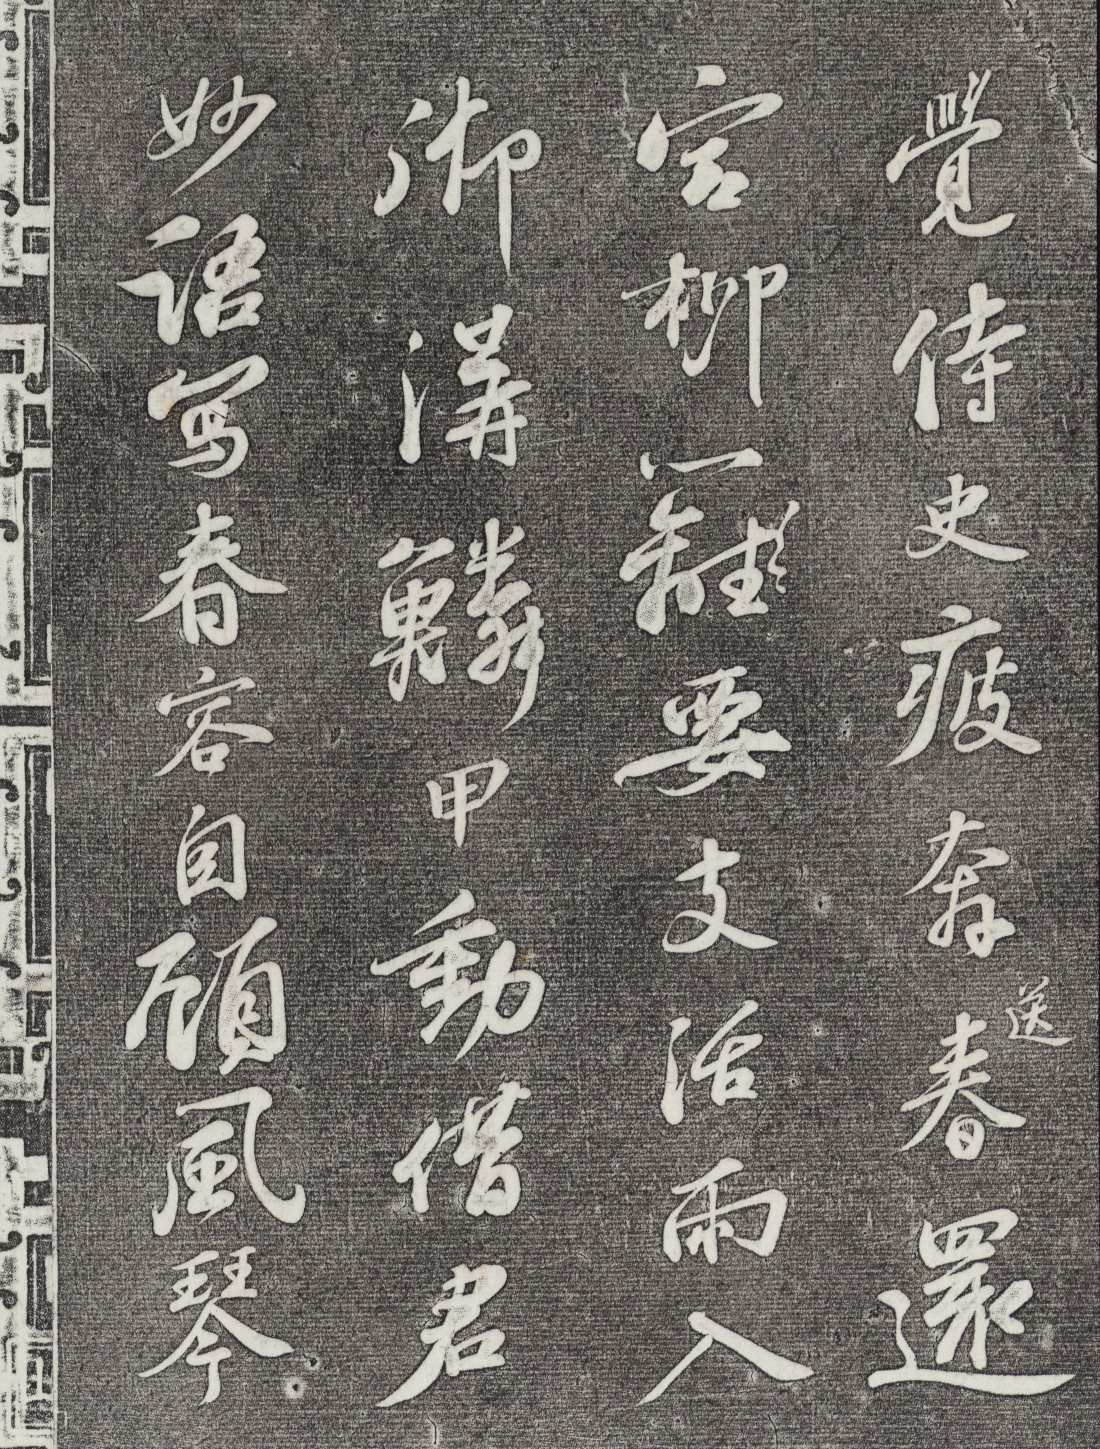 覺侍史疲奔送春還
宮柳要支活雨入
御溝鱗甲動借君
妙語寫春容自顧風琴